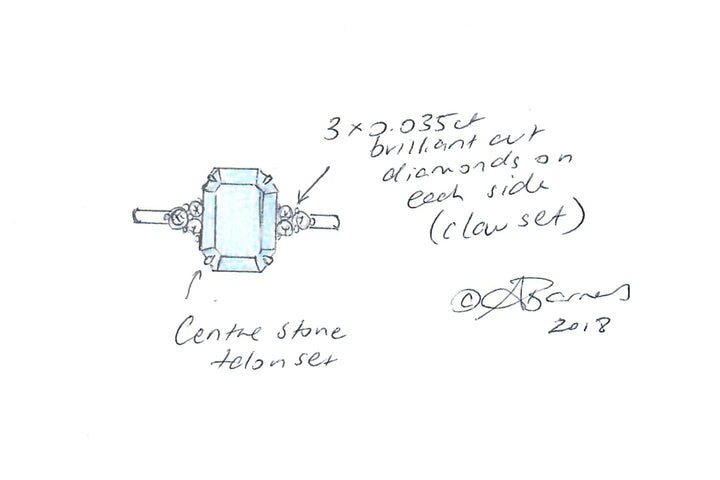 3 x 0.035ct
brilliant cut
diamonds on
each side
(claw set)
© ABarnes
2018
Centre stone
talon set